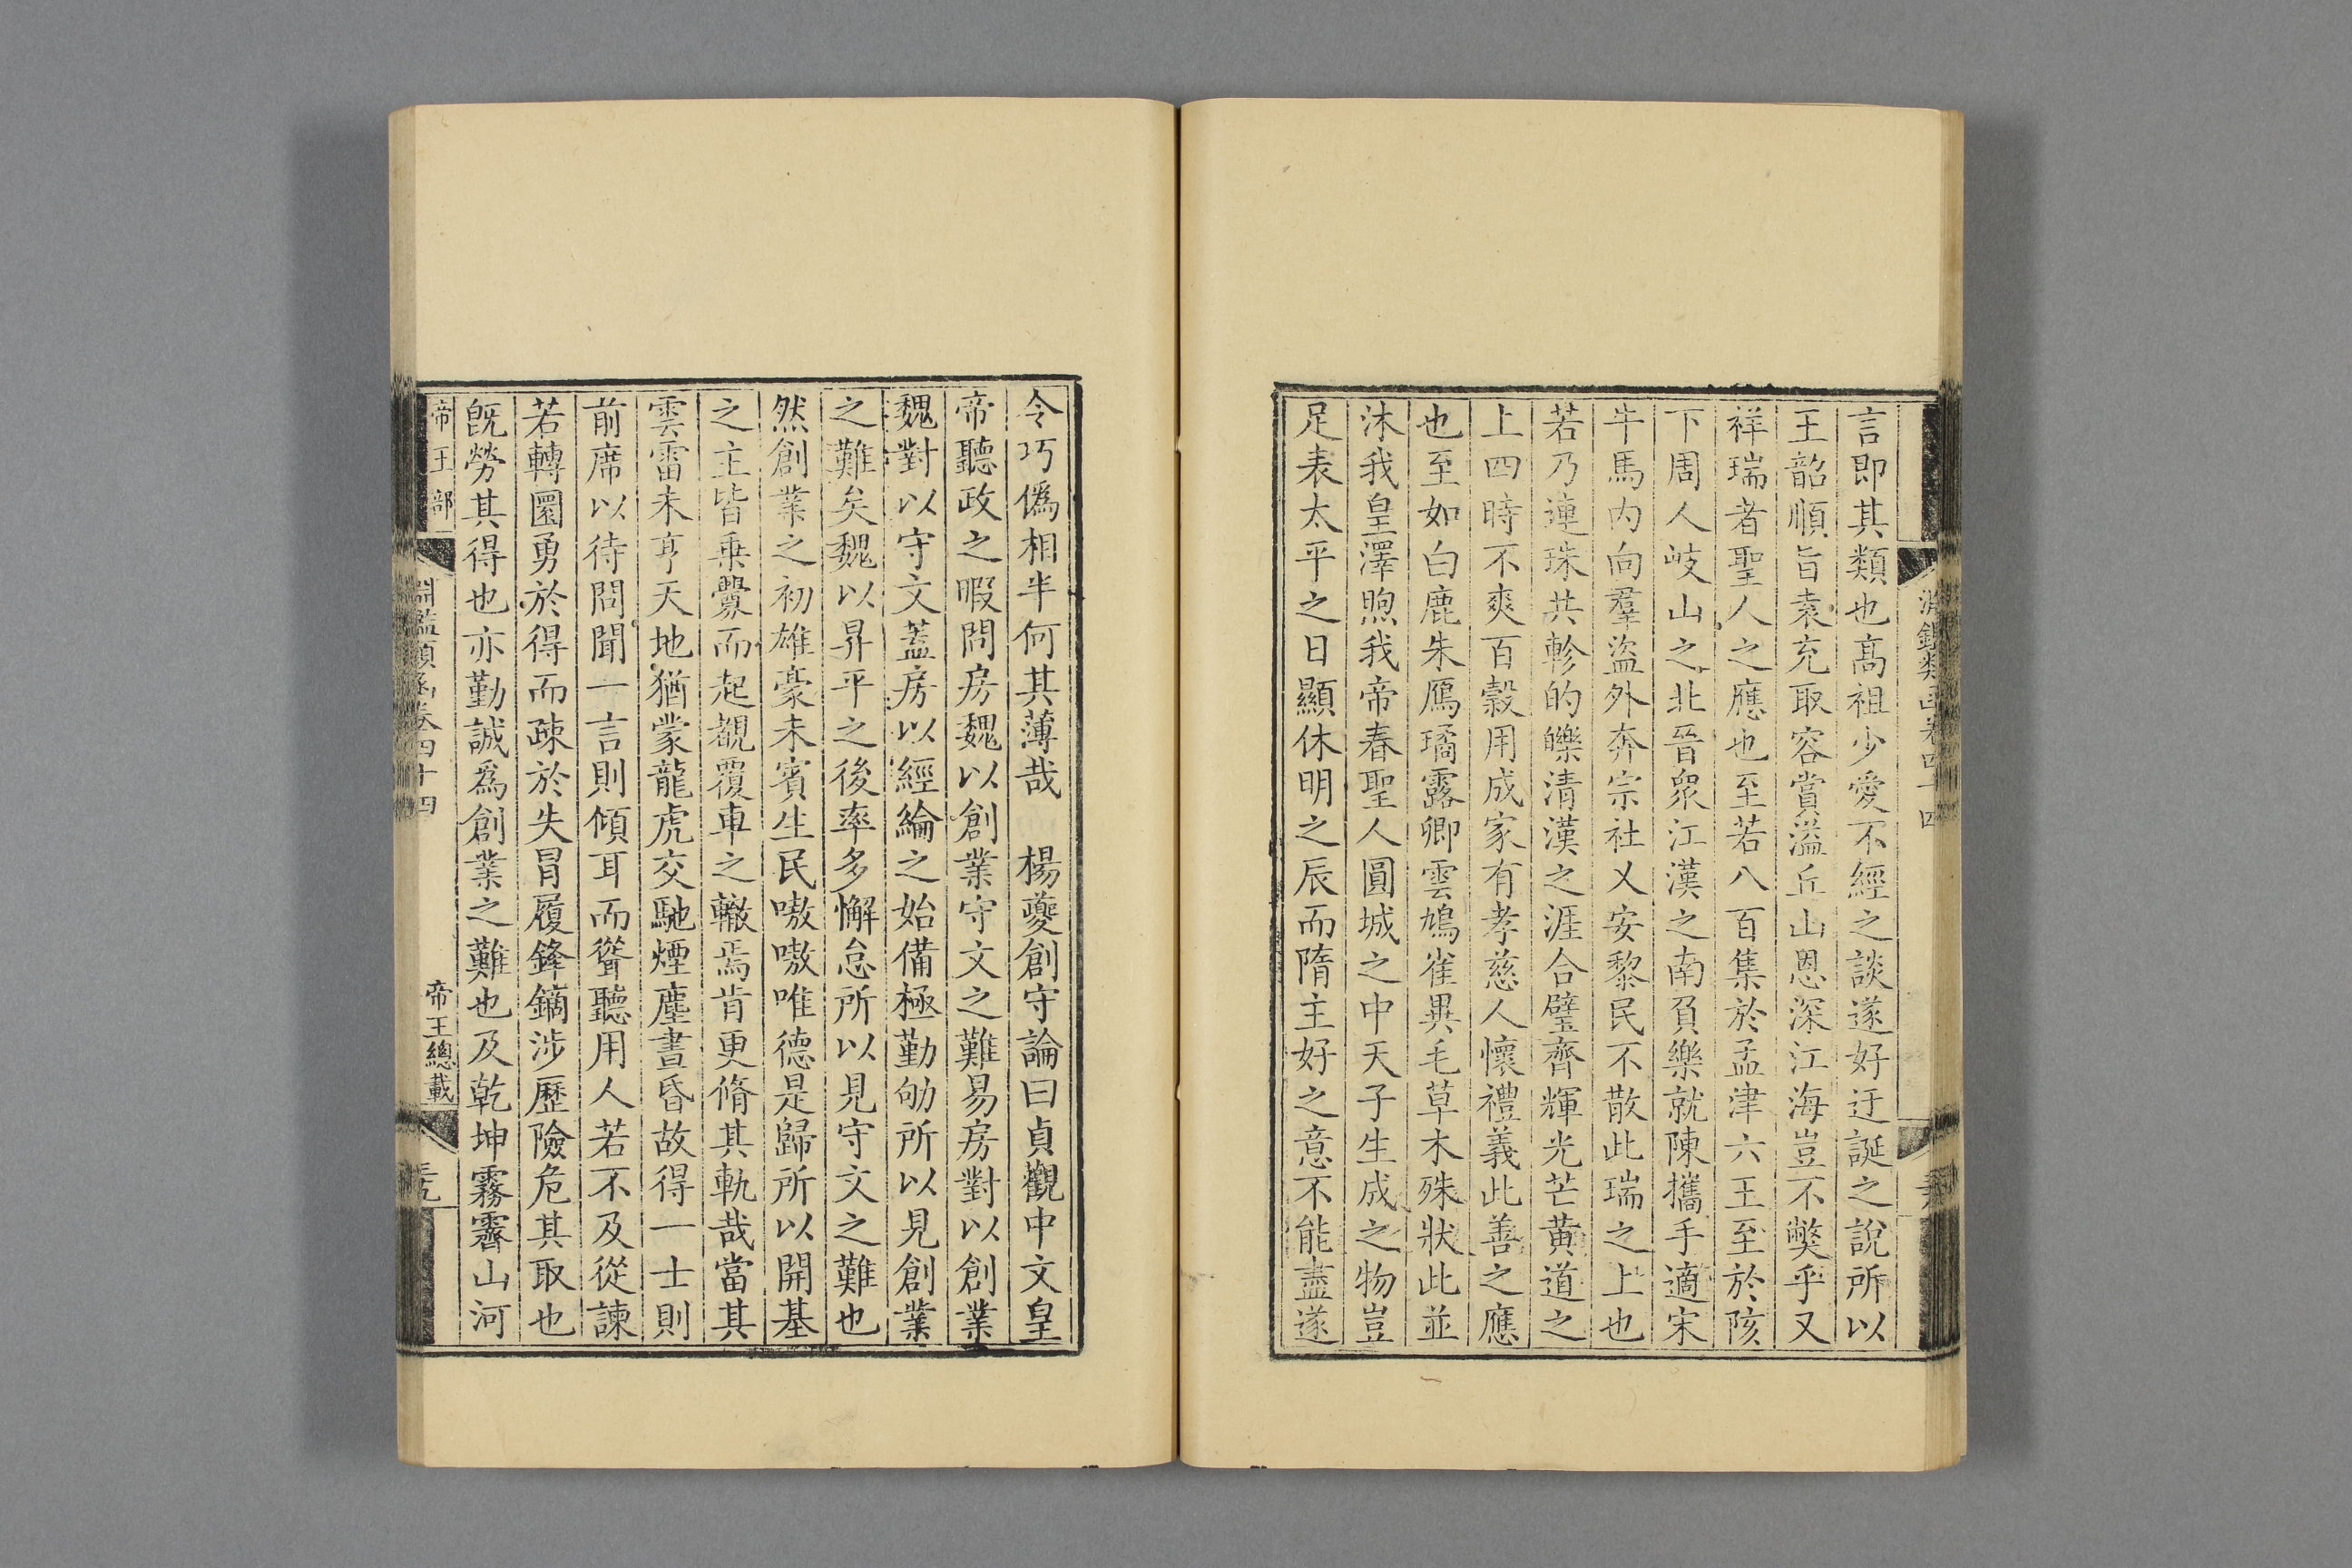 言即其類也髙祖少愛不經之談遂好迂誕之說所以
王韶順旨袁充取容賞溢丘山恩深江海豈不獘乎又
祥瑞者聖人之應也至若八百集於孟津六王至於陔
下周人岐山之北晉衆江漢之南負樂就陳攜手適宋
牛馬内向羣盜外奔宗社乂安黎民不散此瑞之上也
若乃連珠共軫的皪清漢之涯合璧齊輝光芒黄道之
上四時不爽百穀用成家有孝慈人懷禮義此善之應
也至如白鹿朱鴈璚露卿雲鳩雀異毛草木殊狀此並
沐我皇澤煦我帝春聖人圓城之中天子生成之物豈
足表太平之日顯休明之辰而隋主好之意不能盡遂
令巧僞相半何其薄哉　楊夔創守論曰貞觀中文皇
帝聽政之暇問房魏以創業守文之難易房對以創業
魏對以守文蓋房以經綸之始備極勤劬所以見創業
之難矣魏以昇平之後率多懈怠所以見守文之難也
然創業之初雄豪未賓生民嗷嗷唯德是歸所以開基
之主皆乗釁而起覩覆車之轍焉肯更脩其軌哉當其
雲雷未亨天地猶蒙龍虎交馳煙塵晝昏故得一士則
前席以待問聞一言則傾耳而聳聽用人若不及從諫
若轉圜勇於得而疎於失冒履鋒鏑涉歷險危其取也
旣勞其得也亦勤誠爲創業之難也及乾坤霧霽山河
帝王部
淵鑑類函卷四十四
帝王總載